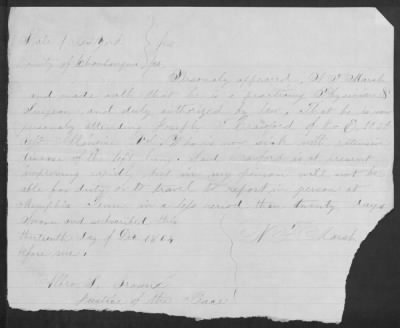 State of New York } ss
County of Chautauqua } ss
Personaly appeared, N F Marsh
and made oath that he is a practicing Physician &
Surgeon, and duly authorized by law. That he is now
personaly attending Joseph Crawford of Co E,
Who is now sick with extensive
disease of the left lung. Said Crawford is at present
improving rapidly but in my opinion will not be
able for duty or to travel to report in person at
Memphis Tenn in a less period than twenty days
Sworn and subscribed this
thirteenth day of Oct 1864 N F Marsh
before me.
Justice of the Peace